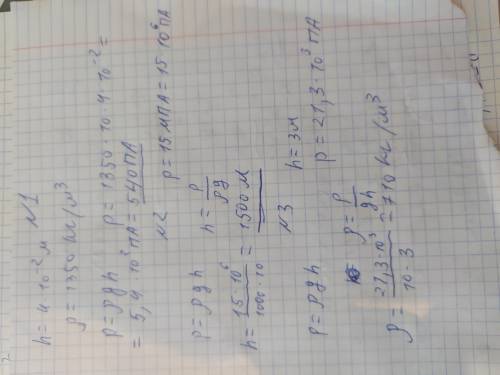 №1
h = 4·10⁻² м
ρ = 1350 кг/м³
p = ρgh p = 1350·10·4·10⁻² =
= 5,4·10² ПА = 540 ПА
№2
p = 15 МПА = 15·10⁶ ПА
p = ρgh h = p/ρg
h = 15·10⁶/1000·10 = 1500 м
№3
h = 3 м
p = 21,3·10³ ПА
p = ρgh ρ = p/gh
ρ = 21,3·10³/10·3 = 710 кг/м³